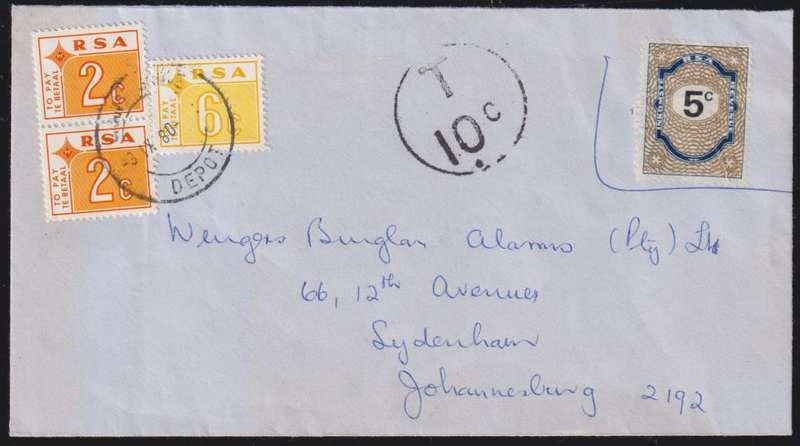 RSA
TO PAY
TE BETAAL
2c
RSA
TO PAY
TE BETAAL
6c
TO PAY
TE BETAAL
2c
DEPOT
T
10c
5c
Wengers Burglar Alarms (Pty) Ltd
66, 12th Avenues
Lydenham
Johannesburg 2192